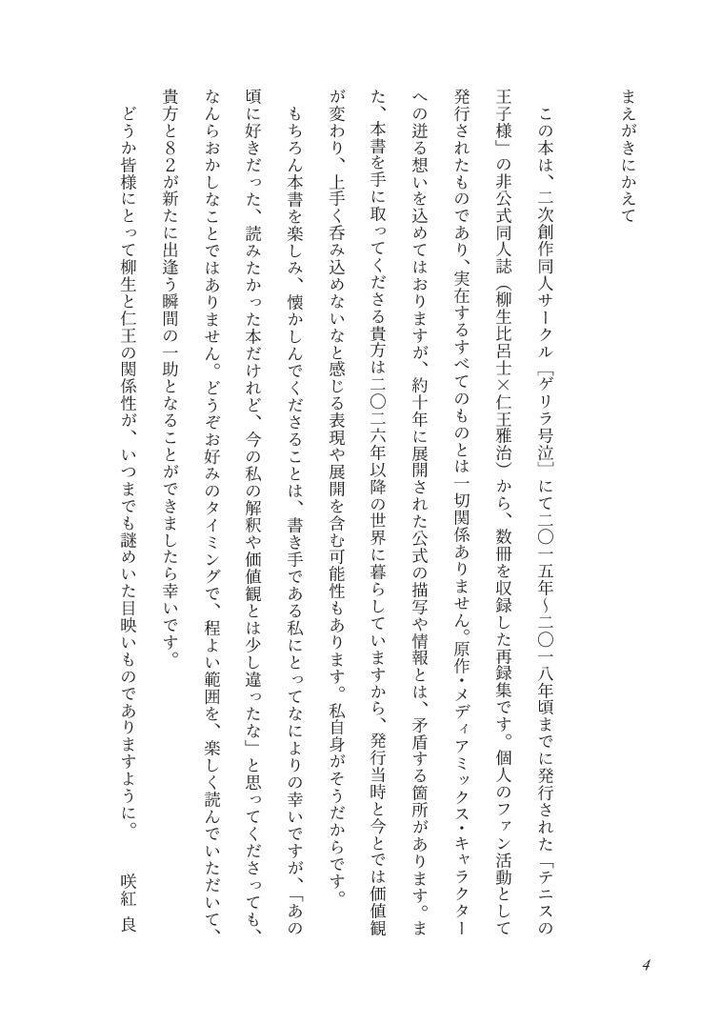 まえがきにかえて
この本は、二次創作同人サークル［ゲリラ号泣］にて二〇一五年～二〇一八年頃までに発行された「テニスの
王子様」の非公式同人誌（柳生比呂士×仁王雅治）から、数冊を収録した再録集です。個人のファン活動として
発行されたものであり、実在するすべてのものとは一切関係ありません。原作・メディアミックス・キャラクター
への迸る想いを込めてはおりますが、約十年に展開された公式の描写や情報とは、矛盾する箇所があります。ま
た、本書を手に取ってくださる貴方は二〇二六年以降の世界に暮らしていますから、発行当時と今とでは価値観
が変わり、上手く呑み込めないなと感じる表現や展開を含む可能性もあります。私自身がそうだからです。
もちろん本書を楽しみ、懐かしんでくださることは、書き手である私にとってなによりの幸いですが、「あの
頃に好きだった、読みたかった本だけれど、今の私の解釈や価値観とは少し違ったな」と思ってくださっても、
なんらおかしなことではありません。どうぞお好みのタイミングで、程よい範囲を、楽しく読んでいただいて、
貴方と82が新たに出逢う瞬間の一助となることができましたら幸いです。
どうか皆様にとって柳生と仁王の関係性が、いつまでも謎めいた目映いものでありますように。　咲紅 良
4